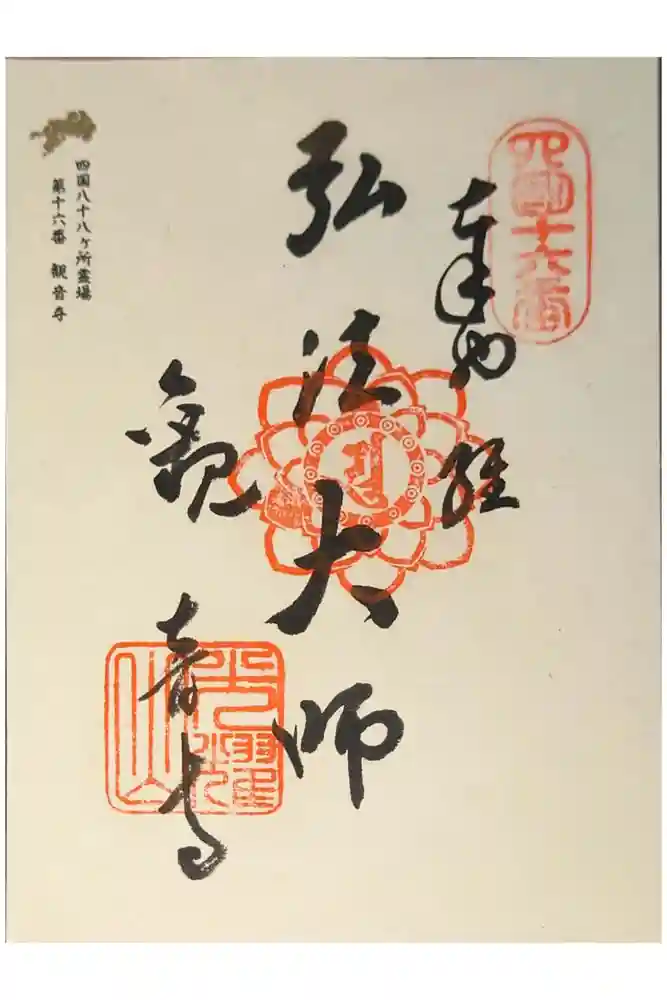 四国十六番
奉納経
弘法大師
観音寺
光耀山
四国八十八ヶ所霊場
第十六番 観音寺